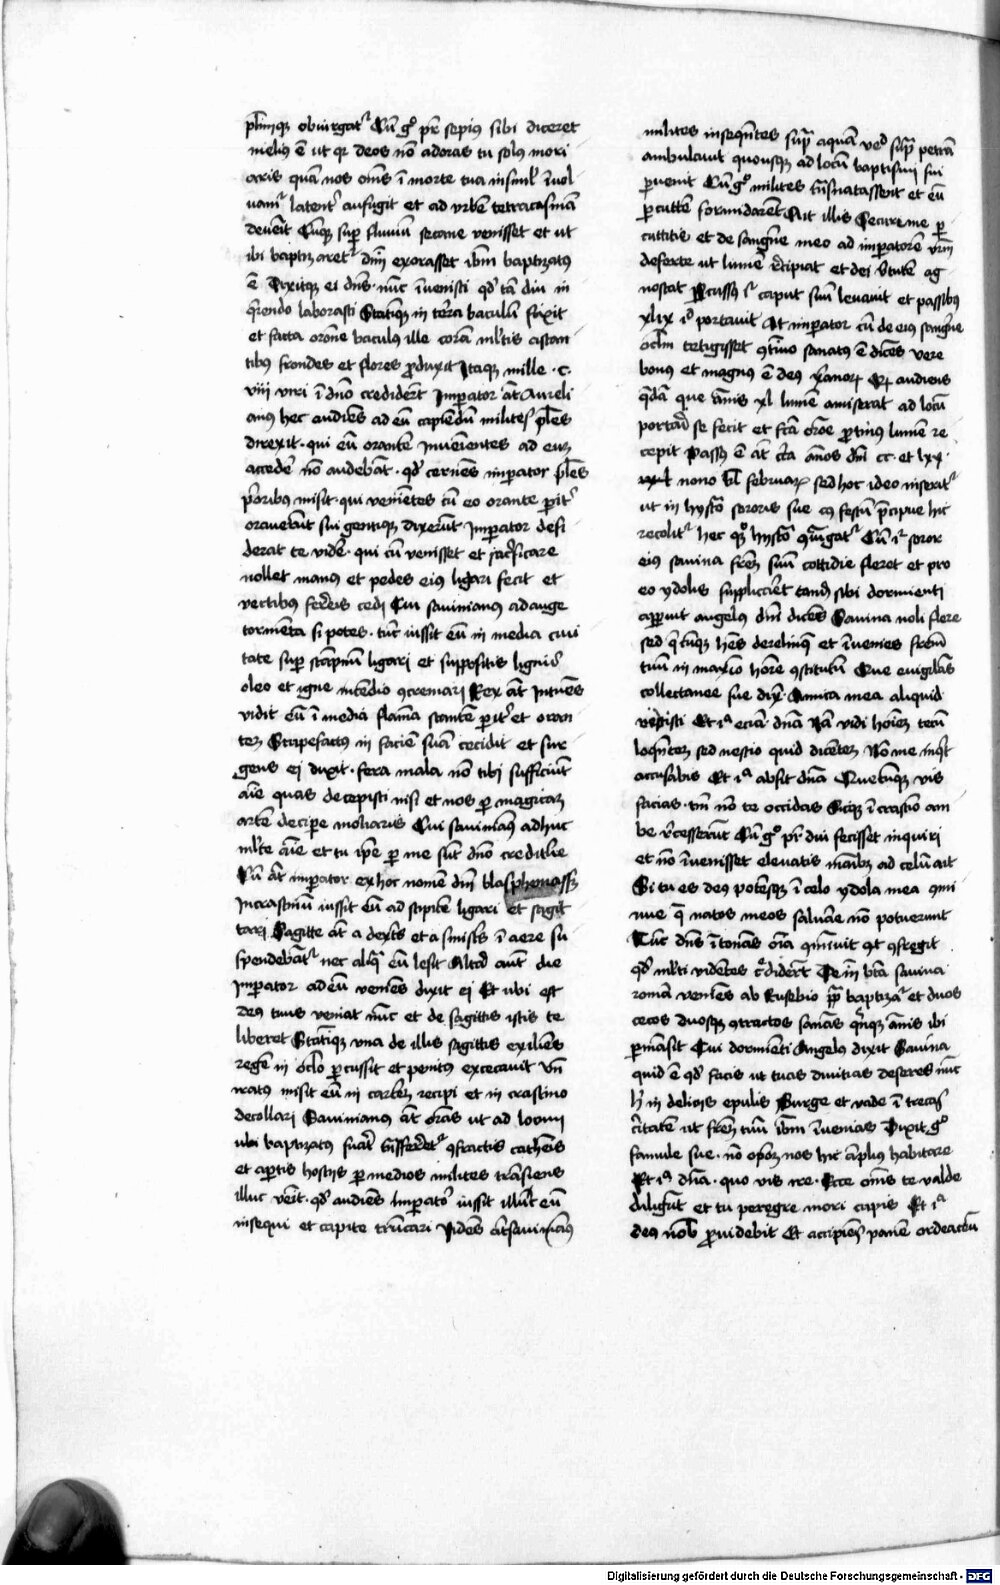 plurimumque obiurgat' Cu͂ gͦ pr̄ sepius sibi diceret
melius ē ut qr deos nō adoras tu solus mori
aris quā nos om̄s ī morte tua insimul īuol
uam' latent' aufugit et ad urbē tetracasinā
deuēit Cūqꝫ sup̄ fluuiū secane venisset et ut
ibi baptizaret' dn̄m exorasset ibm̄ baptizatus
ē Dixitqꝫ ei dn̄s nūc īuenisti qd' tā diu in
q̄rendo laborasti Statīqꝫ in terra baculū fixit
et facta orōne baculus ille corā ml'tis astan
tibus frondes et flores ꝓduxit Itaqꝫ mille c.
viii viri ī dn̄o crediderūt Imperator āt Aureli
anus hec audiēs ad eū capiēdū milites pl'es
direxit qui eū orantē īueniētes ad eum
accedē nō audebāt qd' cernēs imperator pl'es
p'oribus misit qui veniētes cū eo orante pīt'
orauerūt surgentisqꝫ dixerūt Imperator desi
derat te vidē qui cū venisset et sacrificare
nollet manus et pedes eius ligari fecit et
vectibus ferreis cedi Cui sauinianus adauge
tormēta si potes tūc iussit eū in media ciui
tate sup̄ scāpnū ligari et suppositis lignis
oleo et igne incēdio ꝯcremari Rex āt intuēs
vidit eū ī media flāma stantē p̱ it' et oran
tem Stupefactus in faciē suā cecidit et sur
gens ei dixit fera mala nō tibi sufficiūt
aīe quas decepisti nisi et nos p̱ magicam
artē decipe moliaris Cui sauinianus adhuc
ml'te aīe et tu ipe p̱ me sūt dn̄o credit'e
Cū āt imperator ex hoc nomē dn̄i blasphemasset
In crastinū iussit eū ad stipitē ligari et sagit
tari Sagitte āt a dextris et a sinistris ī aere su
spendebāt' nec aliqꝫ eū lesit Altera aūt die
Imperator ad eū veniēs dixit ei Et ubi est
deus tuus veniat nūc et de sagittis istis te
liberet Statīqꝫ una de illis sagittis exiliēs
regē in oc'lo p̱cussit et penitus excecauit Vn̄
iratus misit eū in carcerē recipi et in crastino
decollari Sauinianus āt orās ut ad locum
ubi baptizatus fuat' trāsferret' ꝯfractis cathenis
et ap̱tis hostijs p̱ medios milites trāsiens
illuc venit qd' audiēs Imperator iussit illuc eū
insequi et capite trūcari Videns āt sauinianus
milites insequētes sup̄ aquā velud sup̄ petrā
ambulauit quousqꝫ ad locū baptismi sui
p̱uenit Cū gͦ milites trāsnatassent et eū
p̱cutē formidarēt Ait illis Secure me p̱
cuttite et de sanguīe meo ad imperatorē vr̄m
deferte ut lumē recipiat et dei v'tutē ag
noscat P̱cussus i' caput suū leuauit et passibus
xlix īde portauit At imperator cū de eius sanguīe
oc'lm tetigisset ꝯtinuo sanatus ē dicēs vere
bonus et magnus ē deus xr̄ianorꝝ Qꝫ audiens
q̄dā que ānis xl lumē amiserat ad locū
portari se fecit et fcā orōe ꝓtinus lumē re
cepit Passus ē āt c'ca annos dn̄i cc et lxx
nono k'l februarij sed hoc ideo inserat'
ut in hystoria sororis sue cuius festū p̄cipue hic
recolit' hec quoqꝫ hystoria Cū i' soror
eius sauina fr̄em suū cottidie fleret et pro
eo ydolis supplicaret tandē sibi dormienti
apparuit angelus dn̄i dicēs Sauina noli flere
sed q̄cūqꝫ hēs derelinque et īuenies fr̄em
tuū in maxīo honore ꝯstitutū Que euigilās
collectanee sue dixit Amica mea aliquid
audisti Et i'a eciā dn̄a nā vidi hoīem tecū
loquētem sed nescio quid dicētem Nō me inq't
accusabis Et i'a absit dn̄a Quecūqꝫ vis
facias tm̄ nō te occidas Sicqꝫ ī crastīo am
be recesserūt Cū gͦ pr̄ diu fecisset inquiri
et nō īuenisset eleuatis manibus ad celū ait
Si tu es deus potensqꝫ ī celo ydola mea ꝯmi
nue q̄ natos meos saluare nō potuerunt
Tūc dn̄s ītonās oīa ꝯminuit et ꝯfregit
qd' ml'ti vidētes credidērt Tēm bt̄a sauina
romā veniēs ab Eusebio pp̄ baptizat' et duos
cecos duosqꝫ ꝯtractos sanās q̄nqꝫ annis ibi
p̱mansit Cui dormiēti Angelus dixit Sauina
quid ē qd' facis ut tuas diuitias deseres nūc
h' in delicijs epulis Surge et vade ī trecas
ciuitatē ut fr̄em tuū ibm̄ īuenias Dixit gͦ
famule sue nō oportet nos hic āplius habitare
Et i'a dn̄a quo vis ire Ecce om̄s te valde
diligunt et tu peregre mori cupis Et i'a
deus nob̄ ꝓuidebit Et accipiēs panē ordeaceū
Digitalisierung gefördert durch die Deutsche Forschungsgemeinschaft - DFG